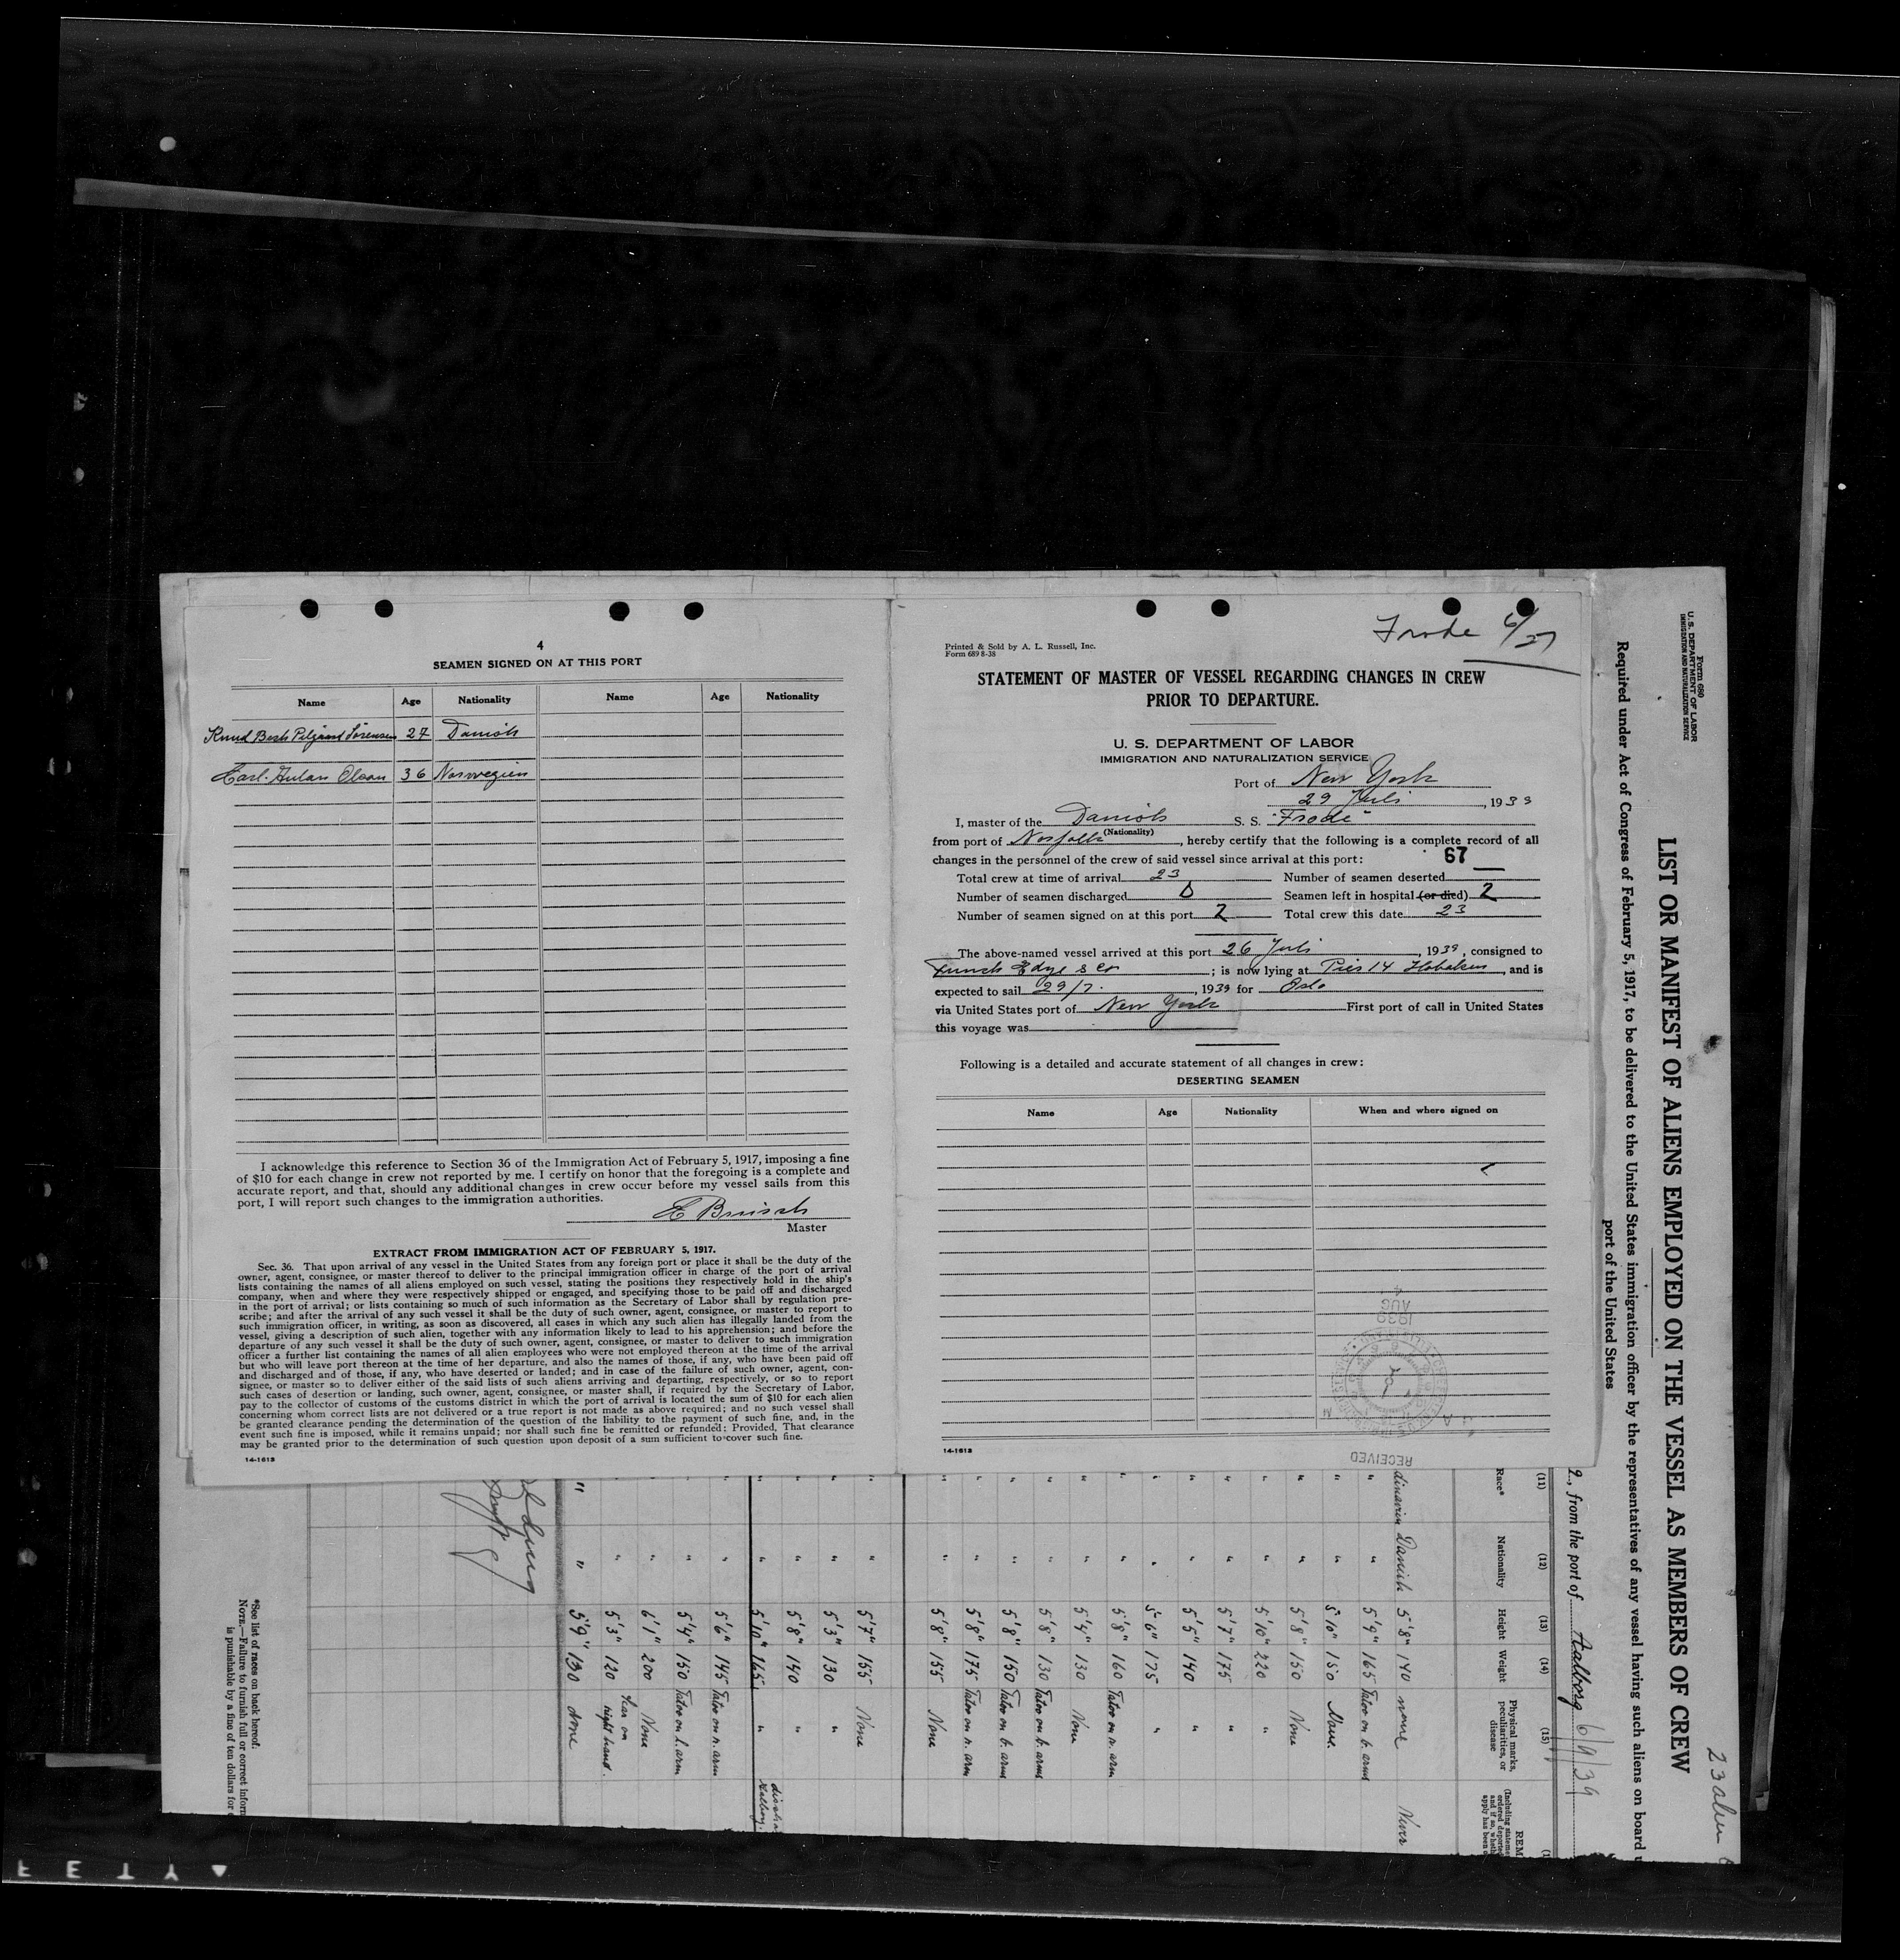 4
SEAMEN SIGNED ON AT THIS PORT
Name Age Nationality Name Age Nationality
Knud Bech Sörensen 27 Danish
Carl Olsen 36 Norwegien
I acknowledge this reference to Section 36 of the Immigration Act of February 5, 1917, imposing a fine
of $10 for each change in crew not reported by me. I certify on honor that the foregoing is a complete and
accurate report, and that, should any additional changes in crew occur before my vessel sails from this
port, I will report such changes to the immigration authorities.
Master
EXTRACT FROM IMMIGRATION ACT OF FEBRUARY 5, 1917.
Sec. 36. That upon arrival of any vessel in the United States from any foreign port or place it shall be the duty of the
owner, agent, consignee, or master thereof to deliver to the principal immigration officer in charge of the port of arrival
lists containing the names of all aliens employed on such vessel, stating the positions they respectively hold in the ship's
company, when and where they were respectively shipped or engaged, and specifying those to be paid off and discharged
in the port of arrival; or lists containing so much of such information as the Secretary of Labor shall by regulation pre-
scribe; and after the arrival of any such vessel it shall be the duty of such owner, agent, consignee, or master to report to
such immigration officer, in writing, as soon as discovered, all cases in which any such alien has illegally landed from the
vessel, giving a description of such alien, together with any information likely to lead to his apprehension; and before the
departure of any such vessel it shall be the duty of such owner, agent, consignee, or master to deliver to such immigration
officer a further list containing the names of all alien employees who were not employed thereon at the time of the arrival
but who will leave port thereon at the time of her departure, and also the names of those, if any, who have been paid off
and discharged and of those, if any, who have deserted or landed; and in case of the failure of such owner, agent, con-
signee, or master so to deliver either of the said lists of such aliens arriving and departing, respectively, or so to report
such cases of desertion or landing, such owner, agent, consignee, or master shall, if required by the Secretary of Labor,
pay to the collector of customs of the customs district in which the port of arrival is located the sum of $10 for each alien
concerning whom correct lists are not delivered or a true report is not made as above required; and no such vessel shall
be granted clearance pending the determination of the question of the liability to the payment of such fine, and, in the
event such fine is imposed, while it remains unpaid; nor shall such fine be remitted or refunded: Provided, That clearance
may be granted prior to the determination of such question upon deposit of a sum sufficient to cover such fine.
14-1613
Frode 6/27
Printed & Sold by A. L. Russell, Inc.
Form 689 8-38
STATEMENT OF MASTER OF VESSEL REGARDING CHANGES IN CREW
PRIOR TO DEPARTURE.
U. S. DEPARTMENT OF LABOR
IMMIGRATION AND NATURALIZATION SERVICE
Port of New York
29 Juli, 1939
I, master of the Danish S. S. "Frode"
(Nationality)
from port of Norfolk, hereby certify that the following is a complete record of all
changes in the personnel of the crew of said vessel since arrival at this port: 67
Total crew at time of arrival 23 Number of seamen deserted —
Number of seamen discharged 0 Seamen left in hospital (or died) 2
Number of seamen signed on at this port 2 Total crew this date 23
The above-named vessel arrived at this port 26 Juli, 1939, consigned to
Funch Edye & Co; is now lying at Pier 14 Hoboken, and is
expected to sail 29/7., 1939 for Oslo
via United States port of New York First port of call in United States
this voyage was
Following is a detailed and accurate statement of all changes in crew:
DESERTING SEAMEN
Name Age Nationality When and where signed on
1939
AUG
4
RECEIVED
14-1613
Form 680
U. S. DEPARTMENT OF LABOR
IMMIGRATION AND NATURALIZATION SERVICE
LIST OR MANIFEST OF ALIENS EMPLOYED ON THE VESSEL AS MEMBERS OF CREW
Required under Act of Congress of February 5, 1917, to be delivered to the United States immigration officer by the representatives of any vessel having such aliens on board
port of the United States
from the port of Aalborg 6/9/39
23 alien
(11) (12) (13) (14) (15)
Race* Nationality Height Weight Physical marks, peculiarities, or disease
Danish 5'8" 140 none
" " 5'9" 165 Tatoo on b. arms
" " 5'10" 150 None.
" " 5'8" 150 None
" " 5'10" 220 "
" " 5'7" 175 "
" " 5'5" 140 "
" " 5'6" 175 "
" " 5'8" 160 Tatoo on r. arm
" " 5'4" 130 None
" " 5'8" 130 Tatoo on b. arms
" " 5'8" 150 Tatoo on b. arms
" " 5'8" 175 Tatoo on r. arm
" " 5'8" 155 None
" " 5'7" 155 None
" " 5'3" 130 "
" " 5'8" 140 "
" " 5'10" 165 "
" " 5'6" 145 Tatoo on r. arm
" " 5'4" 150 Tatoo on l. arm
" " 6'1" 200 None
" " 5'3" 120 Scar on right hand.
" " 5'9" 130 none
*See list of races on back hereof.
NOTE.—Failure to furnish full or correct inform
is punishable by a fine of ten dollars for
FETY